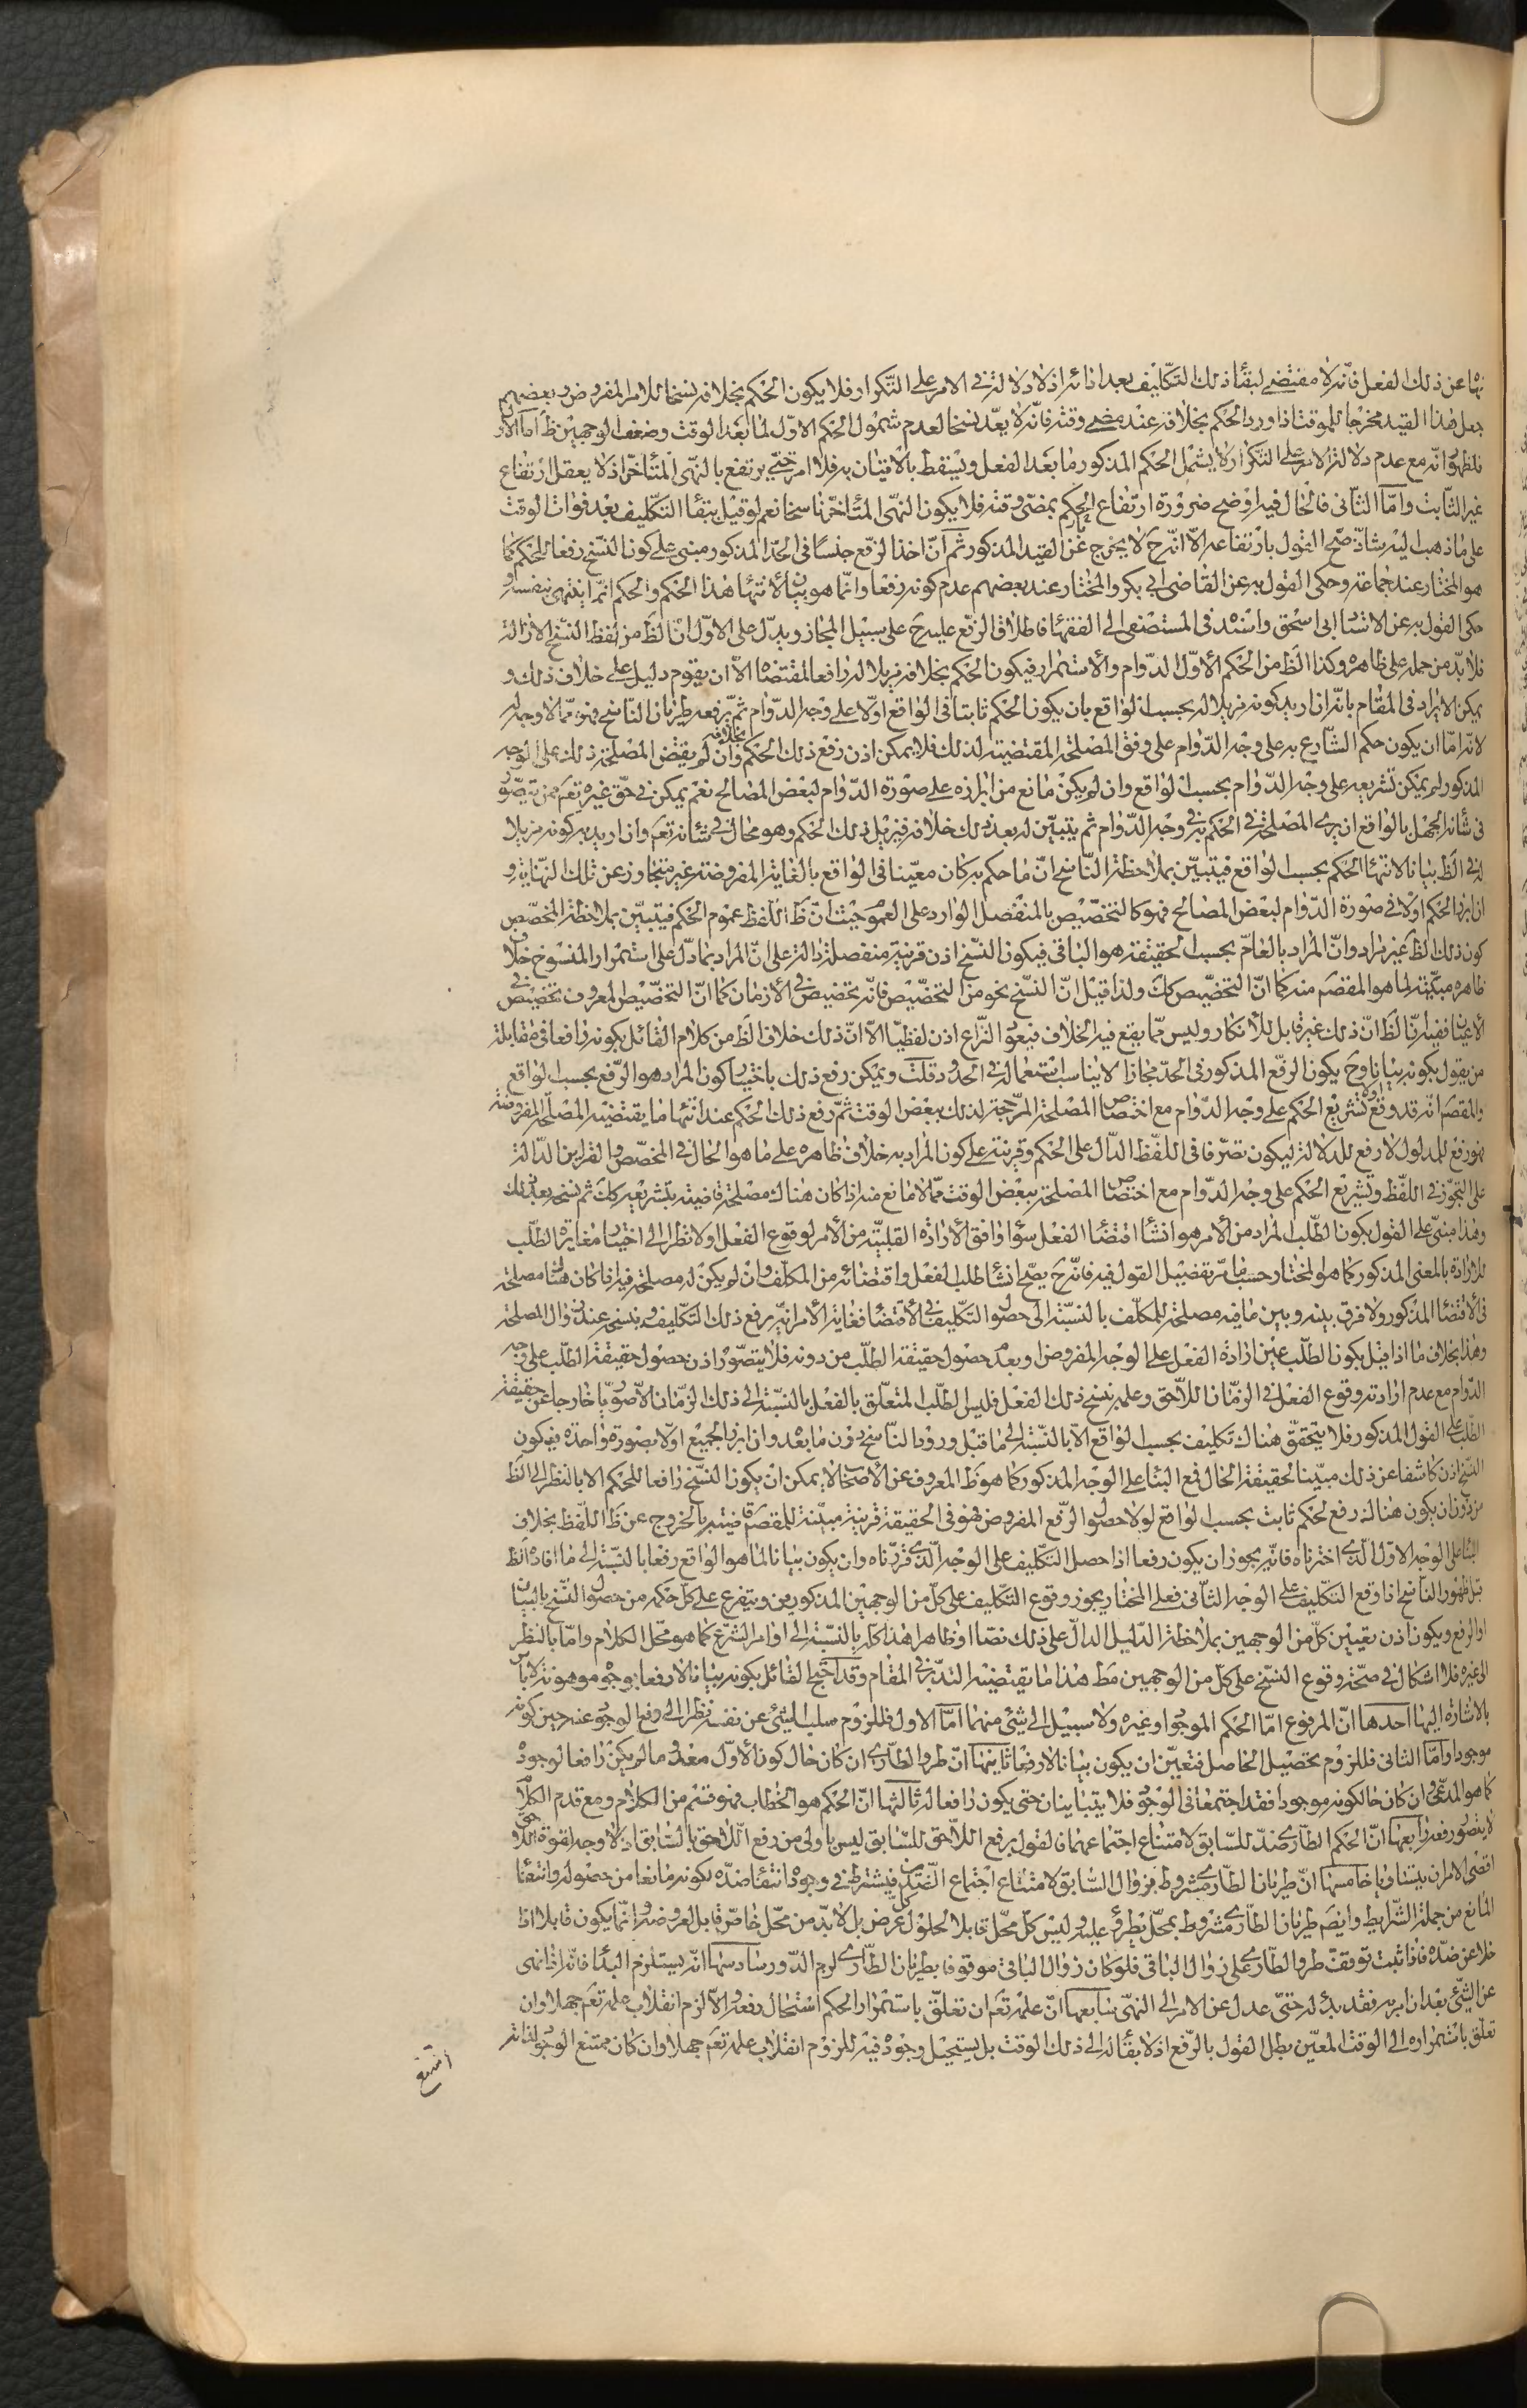 نها عن ذلك الفعل فانه لا مقتضى لبقاء ذلك التكليف بعد ادائه اذ لا دلالة فى الامر على التكرار فلا يكون الحكم بخلافه نسخا للامر المفروض وبعضهم
جعل هذا القيد مخرجا للموقت اذا ورد الحكم بخلافه عند مضى وقته فانه لا يعد نسخا لعدم شمول الحكم الاول لما بعد الوقت وضعف الوجهين ظ اما الاول
فلظهور انه مع عدم دلالة الامر على التكرار لا يشمل الحكم المذكور ما بعد الفعل ويسقط بالاتيان به فلا امر حتى يرتفع بالنهى المتاخر اذ لا يعقل ارتفاع
غير الثابت واما الثانى فالحال فيه اوضح ضرورة ارتفاع الحكم بمضى وقته فلا يكون النهى المتاخر ناسخا نعم لو قيل ببقاء التكليف بعد فوات الوقت
على ما ذهب اليه شاذ صح القول بارتفاعه الا انه ح لا يخرج عن القيد المذكور ثم ان اخذ الرفع جنسا فى الحد المذكور مبنى على كون النسخ رفعا للحكم كما
هو المختار عند جماعة وحكى القول به عن القاضى ابى بكر والمختار عند بعضهم عدم كونه رفعا وانما هو بيان لانتهاء هذا الحكم والحكم انما ينتهى بنفسه و
حكى القول به عن الاستاد ابى اسحق واسند فى المستصفى الى الفقهاء فاطلاق الرفع عليه ح على سبيل المجاز ويدل على الاول ان الظ من لفظ النسخ الازالة
فلا بد من حمله على ظاهره وكذا الظ من الحكم الاول الدوام والاستمرار فيكون الحكم بخلافه مزيلا له رافعا لمقتضاه الا ان يقوم دليل على خلاف ذلك و
يمكن الايراد فى المقام بانه ان اريد بكونه مزيلا له بحسب الواقع بان يكون الحكم ثابتا فى الواقع اولا على وجه الدوام ثم يرفعه طريان الناسخ فهو مما لا وجه له
لانه اما ان يكون حكم الشارع به على وجه الدوام على وفق المصلحة المقتضية لذلك فلا يمكن اذن رفع ذلك الحكم بخلافه وان لم يقتض المصلحة ذلك على الوجه
المذكور لم يمكن تشريعه على وجه الدوام بحسب الواقع وان لم يكن مانع من ابرازه على صورة الدوام لبعض المصالح نعم يمكن فى حق غيره تعم ممن يتصور
فى شانه الجهل بالواقع ان يرى المصلحة فى الحكم به فى وجه الدوام ثم يتبين له بعد ذلك خلافه فيزيل ذلك الحكم وهو محال فى شانه تعم وان اريد به كونه مزيلا
له فى الظ بيانا لانتهاء الحكم بحسب الواقع فيتبين بملاحظة الناسخ ان ما حكم به كان معينا فى الواقع بالغاية المفروضة غير متجاوز عن تلك النهاية و
ان ابرز الحكم اولا فى صورة الدوام لبعض المصالح فهو كالتخصيص بالمنفصل الوارد على العموم حيث ان ظ اللفظ عموم الحكم فيتبين بملاحظة المخصص
كون ذلك الظ غير مراد وان المراد بالعام بحسب الحقيقة هو الباقى فيكون النسخ اذن قرينة منفصلة دالة على ان المراد بما دل على استمرار المنسوخ خلاف
ظاهره مبينة لما هو المقصم منه كما ان التخصيص كك ولذا قيل ان النسخ نحو من التخصيص فانه تخصيص فى الازمان كما ان التخصيص المعروف تخصيص فى
الاعيان ففيه ان الظ ان ذلك غير قابل للانكار وليس مما يقع فيه الخلاف فيعود النزاع اذن لفظيا الا ان ذلك خلاف الظ من كلام القائل بكونه رافعا فى مقابلة
من يقول بكونه بيانا وح يكون الرفع المذكور فى الحد مجازا لا يناسب استعماله فى الحدود قلت ويمكن رفع ذلك باختيار كون المراد هو الرفع بحسب الواقع
والمقصم انه قد وقع تشريع الحكم على وجه الدوام مع اختصاص المصلحة المرجحة لذلك ببعض الوقت ثم رفع ذلك الحكم عند انتهاء ما يقتضيه المصلحة المفروضة
فهو رفع للمدلول لا رفع للدلالة ليكون تصرفا فى اللفظ الدال على الحكم وقرينة على كون المراد به خلاف ظاهره على ما هو الحال فى المخصص والقراين الدالة
على التجوز فى اللفظ وتشريع الحكم على وجه الدوام مع اختصاص المصلحة ببعض الوقت مما لا مانع منه اذا كان هناك مصلحة قاضية بتشريعه كك ثم نسخه بعد ذلك
وهذا مبنى على القول بكون الطلب المراد من الامر هو انشاء اقتضاء الفعل سواء وافق الارادة القلبية من الامر لوقوع الفعل اولا نظرا الى اختيار مغايرة الطلب
للارادة بالمعنى المذكور كما هو المختار حسب ما مر تفصيل القول فيه فانه ح يصح انشاء طلب الفعل واقتضائه من المكلف وان لم يكن له مصلحة فيه اذا كان هناك مصلحة
فى الاقتضاء المذكور ولا فرق بينه وبين ما فيه مصلحة للمكلف بالنسبة الى حصول التكليف فى الاقتضاء فغاية الامر انه يرفع ذلك التكليف وينسخه عند زوال المصلحة
وهذا بخلاف ما اذا قيل بكون الطلب عين ارادة الفعل على الوجه المفروض او بعدم حصول حقيقة الطلب من دونه فلا يتصور اذن حصول حقيقة الطلب على وجه
الدوام مع عدم ارادته وقوع الفعل فى الزمان اللاحق وعلمه بنسخ ذلك الفعل فليس الطلب المتعلق بالفعل بالنسبة الى ذلك الزمان الا صوريا خارجا عن حقيقة
الطلب على القول المذكور فلا يتحقق هناك تكليف بحسب الواقع الا بالنسبة الى ما قبل ورود الناسخ دون ما بعده وان ابرز الجميع اولا بصورة واحدة فيكون
النسخ اذن كاشفا عن ذلك مبينا لحقيقة الحال فمع البناء على الوجه المذكور كما هو ظ المعروف عن الاصحاب لا يمكن ان يكون النسخ رافعا للحكم الا بالنظر الى الظ
من دون ان يكون هناك رفع لحكم ثابت بحسب الواقع لولا حصول الرفع المفروض فهو فى الحقيقة قرينة مبينة للمقصم قاضية بالخروج عن ظ اللفظ بخلاف
البناء على الوجه الاول الذى اخترناه فانه يجوز ان يكون رفعا اذا حصل التكليف على الوجه الذى قررناه وان يكون بيانا لما هو الواقع رفعا بالنسبة الى ما افاده الظ
قبل ظهور الناسخ اذا وقع التكليف على الوجه الثانى فعلى المختار يجوز وقوع التكليف على كل من الوجهين المذكورين ويتفرع على كل حكمه من حصول النسخ بالبيان
او الرفع ويكون اذن تعيين كل من الوجهين بملاحظة الدليل الدال على ذلك نصا او ظاهرا هذا كله بالنسبة الى اوامر الشرع كما هو محل الكلام واما بالنظر
الى غيره فلا اشكال فى صحة وقوع النسخ على كل من الوجهين مط هذا ما يقتضيه التدبر فى المقام وقد احتج القائل بكونه بيانا لا رفعا بوجوه موهونة لا باس
بالاشارة اليها احدها ان المرفوع اما الحكم الموجود او غيره ولا سبيل الى شئ منهما اما الاول فللزوم سلب الشئ عن نفسه نظرا الى رفع الوجود عنه حين كونه
موجودا واما الثانى فللزوم تحصيل الحاصل فتعين ان يكون بيانا لا رفعا ثانيها ان طرو الطارى ان كان حال كون الاول معدوما لم يكن رافعا لوجوده
كما هو المدعى وان كان حال كونه موجودا فقد اجتمعا فى الوجود فلا يتباينان حتى يكون رافعا له ثالثها ان الحكم هو الخطاب فهو قسم من الكلام ومع قدم الكلام
لا يتصور رفعه رابعها ان الحكم الطارى ضد للسابق لامتناع اجتماعهما فالقول برفع اللاحق للسابق ليس باولى من رفع اللاحق بالسابق اذ لا وجه لقوة اللاحق
اقصى الامر ان يتساويا خامسها ان طريان الطارى مشروط بزوال السابق لامتناع اجتماع الضدين فيشترط فى وجوده انتفاء ضده لكونه مانعا من حصوله وانتفاء
المانع من جملة الشرايط وايضم طريان الطارى مشروط بمحل يطرؤ عليه وليس كل محل قابلا لحلول كل عرض بل لا بد من محل خاص قابل لعروضه وانما يكون قابلا اذا
خلا عن ضده فاذا ثبت توقف طرو الطارى على زوال الباقى فلو كان زوال الباقى موقوفا بطريان الطارى لزم الدور سادسها انه يستلزم البداء فانه اذا نهى
عن الشئ بعد ان امر به فقد بدا له حتى عدل عن الامر الى النهى سابعها ان علمه تعم ان تعلق باستمرار الحكم استحال رفعه والا لزم انقلاب علمه تعم جهلا وان
تعلق باستمراره الى الوقت المعين بطل القول بالرفع اذ لا بقاء له الى ذلك الوقت بل يستحيل وجوده فيه للزوم انقلاب علمه تعم جهلا وان كان ممتنع الوجود لذاته
امتنع